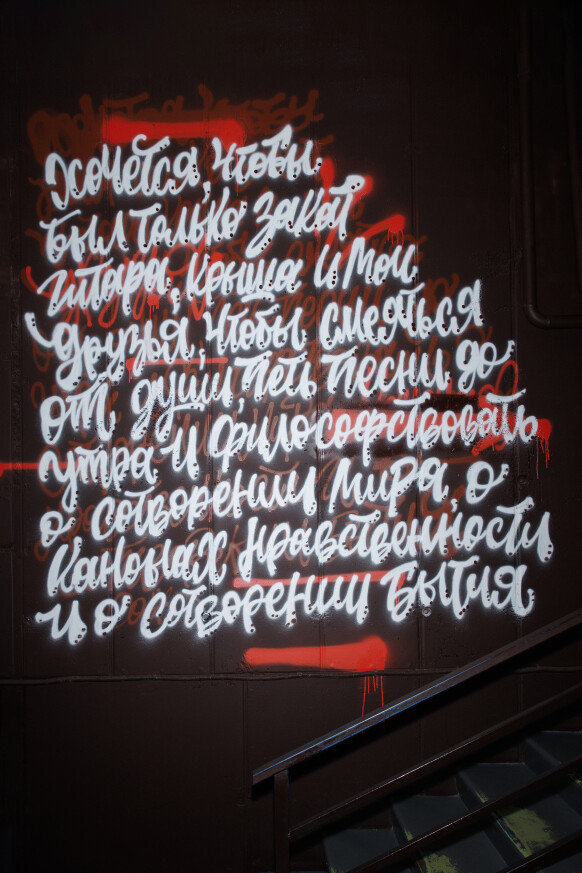 Хочется, чтобы
был только закат
гитара, крыша и мои
друзья, чтобы смеяться
от души, петь песни до
утра и философствовать
о сотворении мира, о
канонах нравственности
и о сотворении бытия